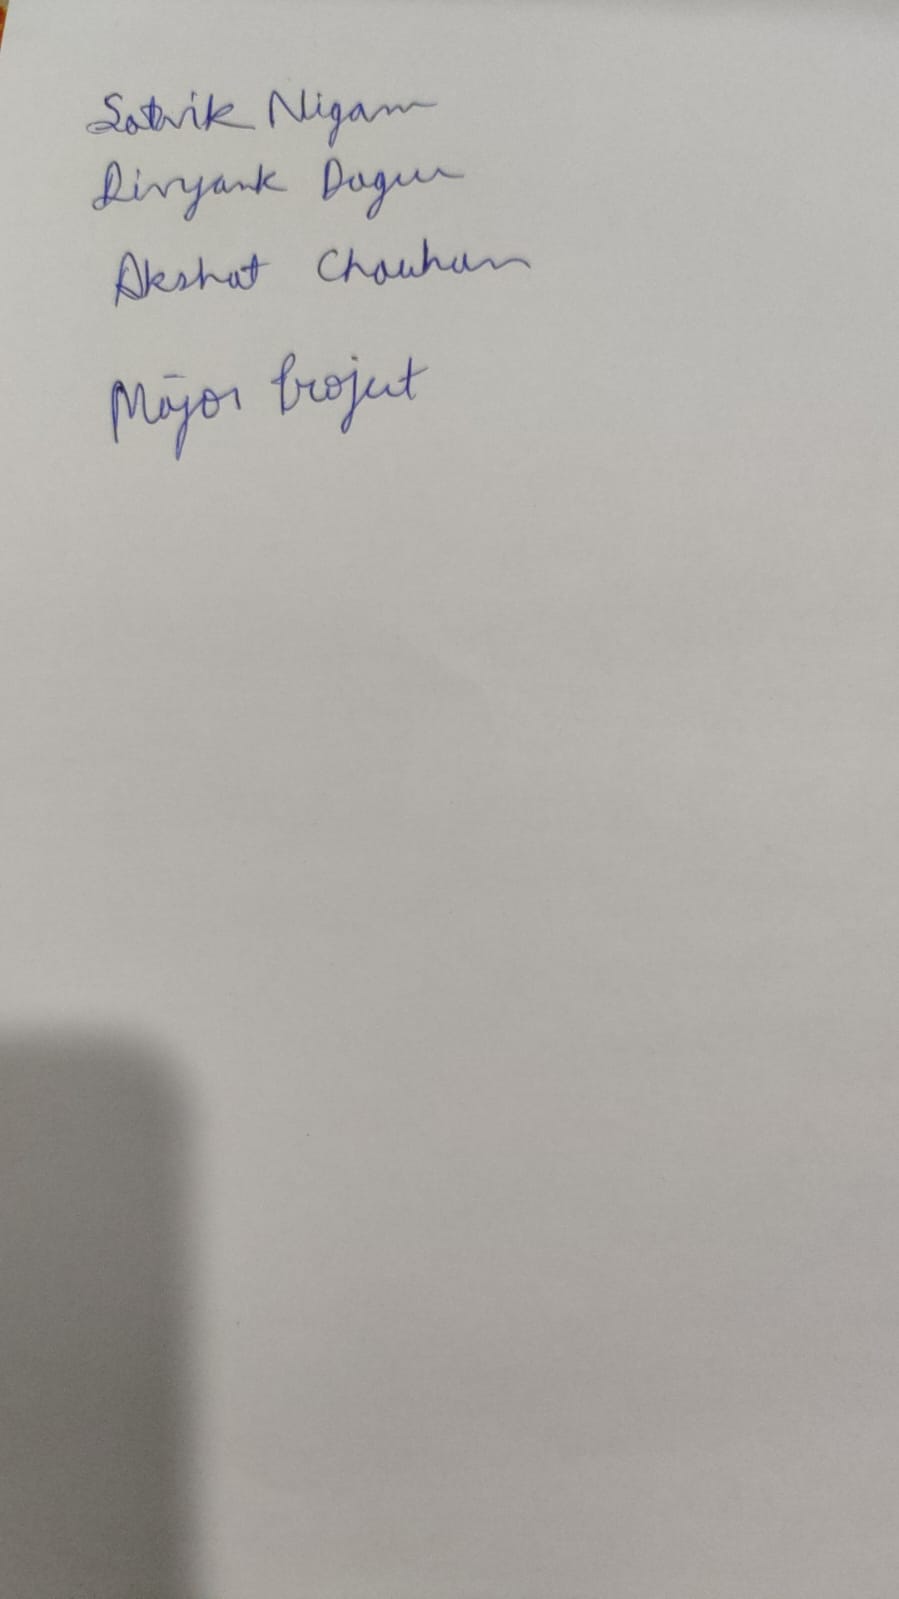 Satvik Nigam
Divyank Dagur
Akshat Chauhan
Major Project